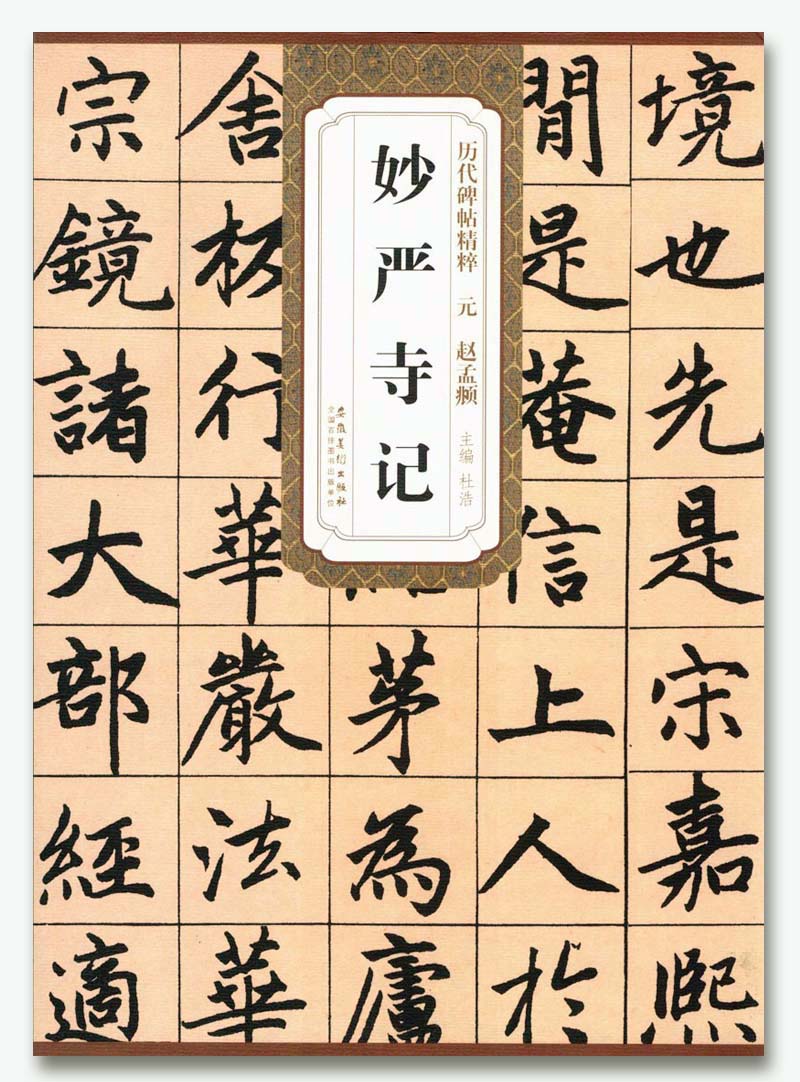 历代碑帖精粹 元 赵孟頫
主编 杜浩
妙严寺记
安徽美术出版社
全国百佳图书出版单位
境也先是宋嘉熙
閒是菴信上人於
茅為廬
舍板行華嚴法華
宗鏡諸大部經適